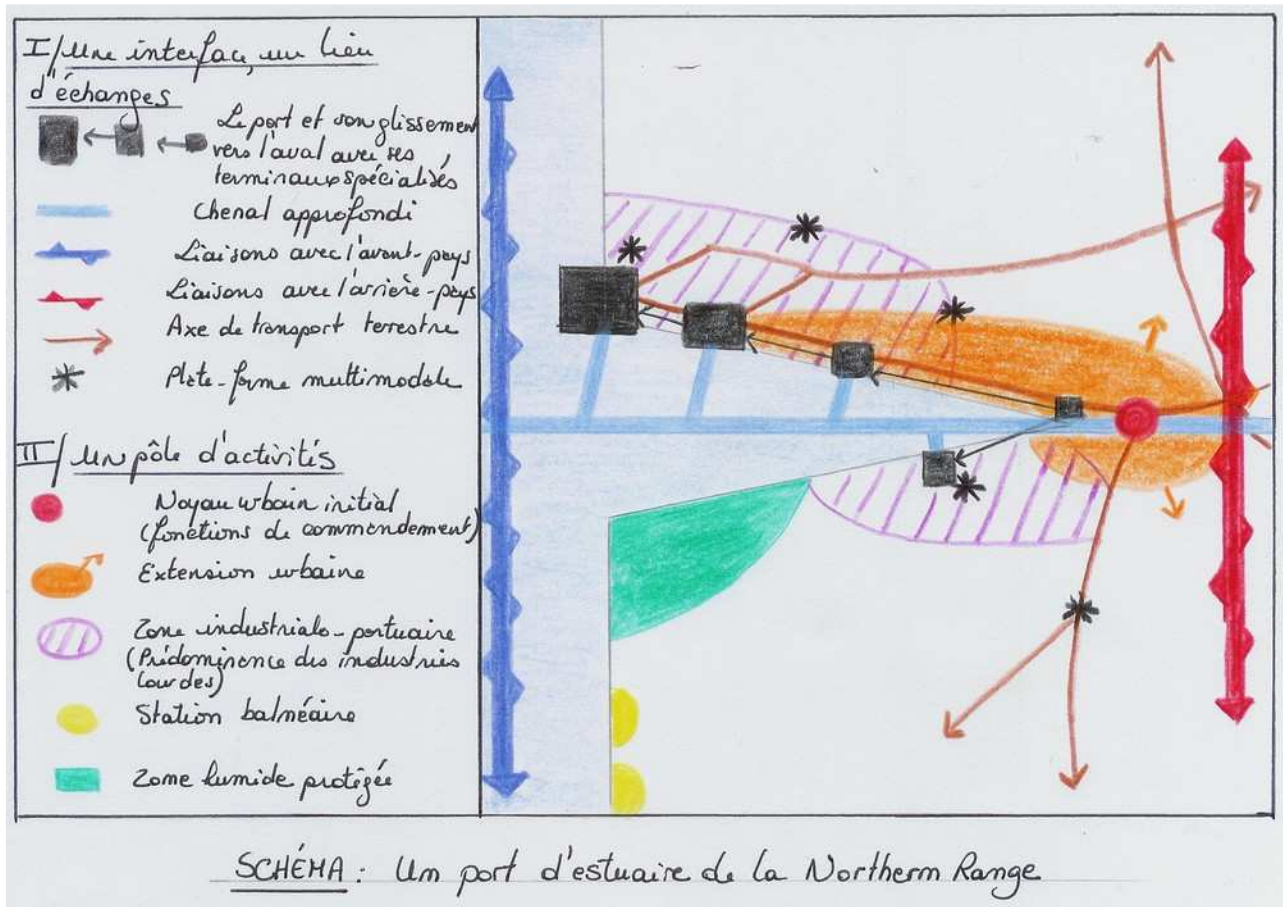 I/ Une interface, un lieu
d'échanges
Le port et son glissement
vers l'aval avec ses
terminaux spécialisés
Chenal approfondi
Liaisons avec l'avant-pays
Liaisons avec l'arrière-pays
Axe de transport terrestre
Plate-forme multimodale
II/ Un pôle d'activités
Noyau urbain initial
(fonctions de commendement)
Extension urbaine
Zone industrialo-portuaire
(Prédominence des industries
lourdes)
Station balnéaire
Zone humide protégée
SCHÉMA : Un port d'estuaire de la Northern Range